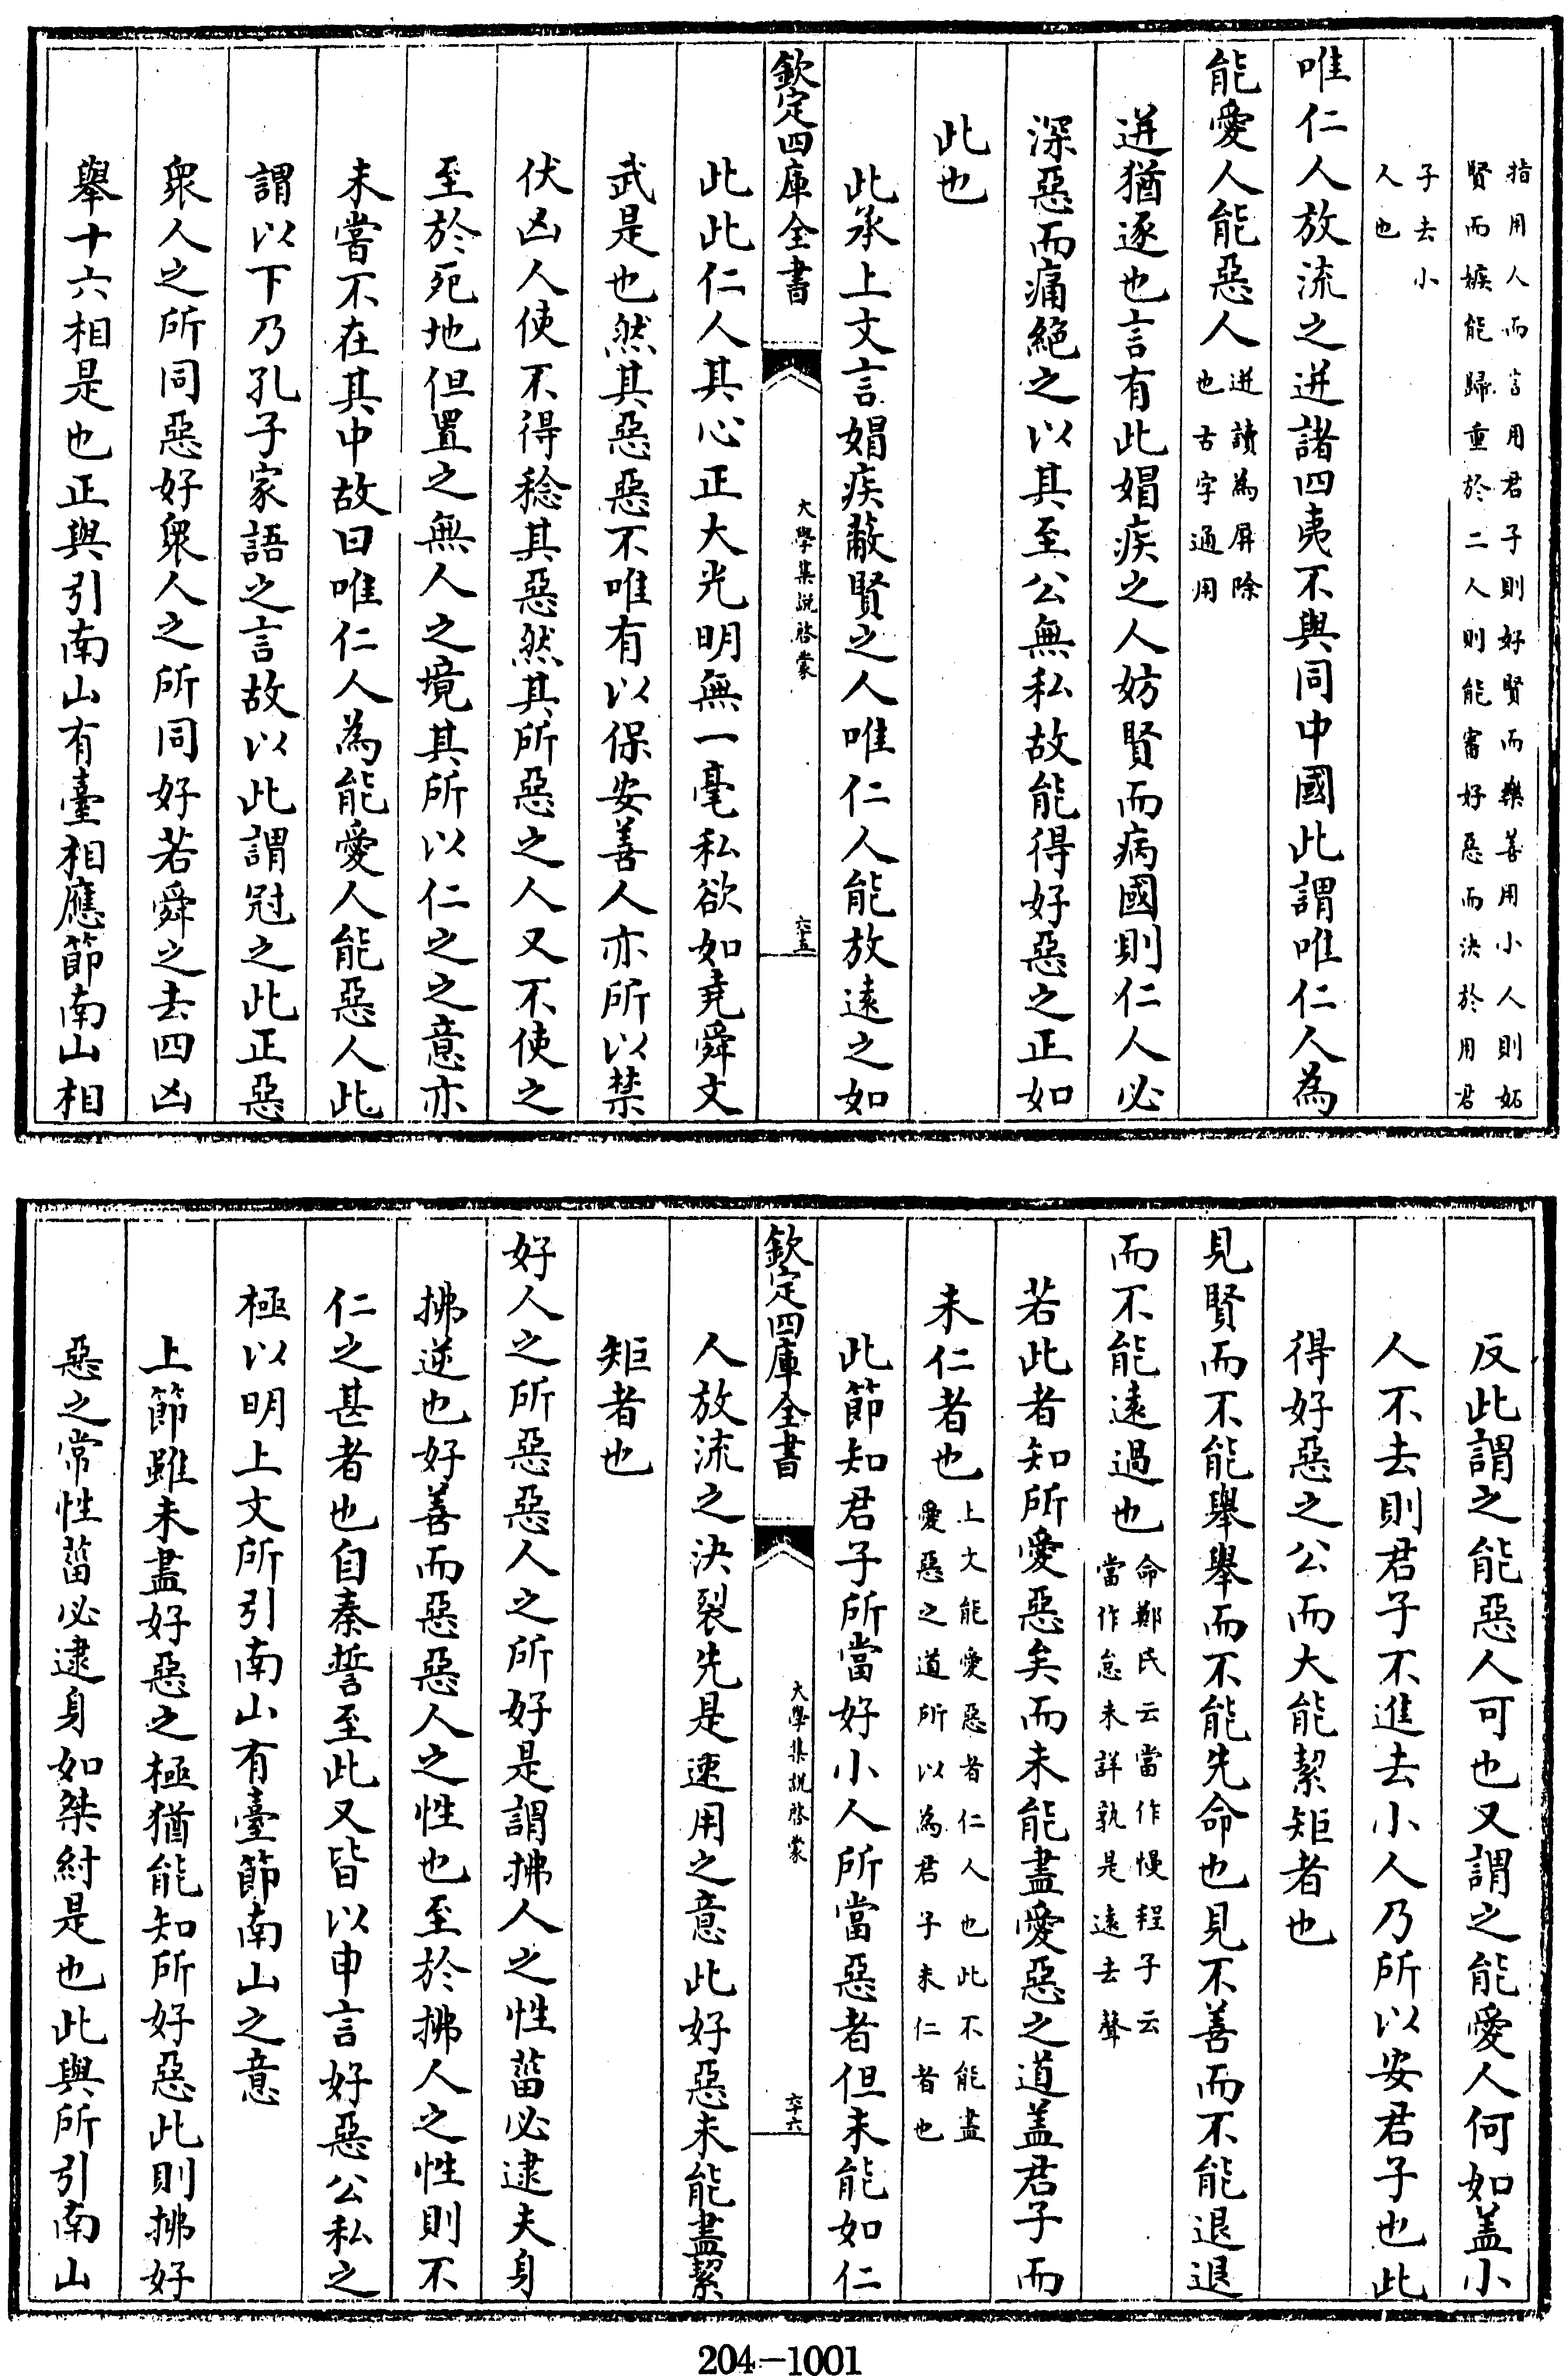 指用人而言用君子則好賢而樂善用小人則妬
賢而嫉能歸重於二人則能審好惡而決於用君
子去小
人也
唯仁人放流之迸諸四夷不與同中國此謂唯仁人為
能愛人能惡人迸讀為屏除
也古字通用
迸猶逐也言有此媢疾之人妨賢而病國則仁人必
深惡而痛絕之以其至公無私故能得好惡之正如
此也
此承上文言媢疾蔽賢之人唯仁人能放遠之如
欽定四庫全書
大學集說啓蒙
六十五
此此仁人其心正大光明無一毫私欲如堯舜文
武是也然其惡惡不唯有以保安善人亦所以禁
伏凶人使不得稔其惡然其所惡之人又不使之
至於死地但置之無人之境其所以仁之之意亦
未嘗不在其中故曰唯仁人為能愛人能惡人此
謂以下乃孔子家語之言故以此謂冠之此正惡
衆人之所同惡好衆人之所同好若舜之去四凶
舉十六相是也正與引南山有臺相應節南山相
反此謂之能惡人可也又謂之能愛人何如盖小
人不去則君子不進去小人乃所以安君子也此
得好惡之公而大能絜矩者也
見賢而不能舉舉而不能先命也見不善而不能退退
而不能遠過也命鄭氏云當作慢程子云
當作怠未詳孰是遠去聲
若此者知所愛惡矣而未能盡愛惡之道盖君子而
未仁者也上文能愛惡者仁人也此不能盡
愛惡之道所以為君子未仁者也
此節知君子所當好小人所當惡者但未能如仁
欽定四庫全書
大學集說啓蒙
六十六
人放流之決裂先是速用之意此好惡未能盡絜
矩者也
好人之所惡惡人之所好是謂拂人之性菑必逮夫身
拂逆也好善而惡惡人之性也至於拂人之性則不
仁之甚者也自秦誓至此又皆以申言好惡公私之
極以明上文所引南山有臺節南山之意
上節雖未盡好惡之極猶能知所好惡此則拂好
惡之常性菑必逮身如桀紂是也此與所引南山
204-1001